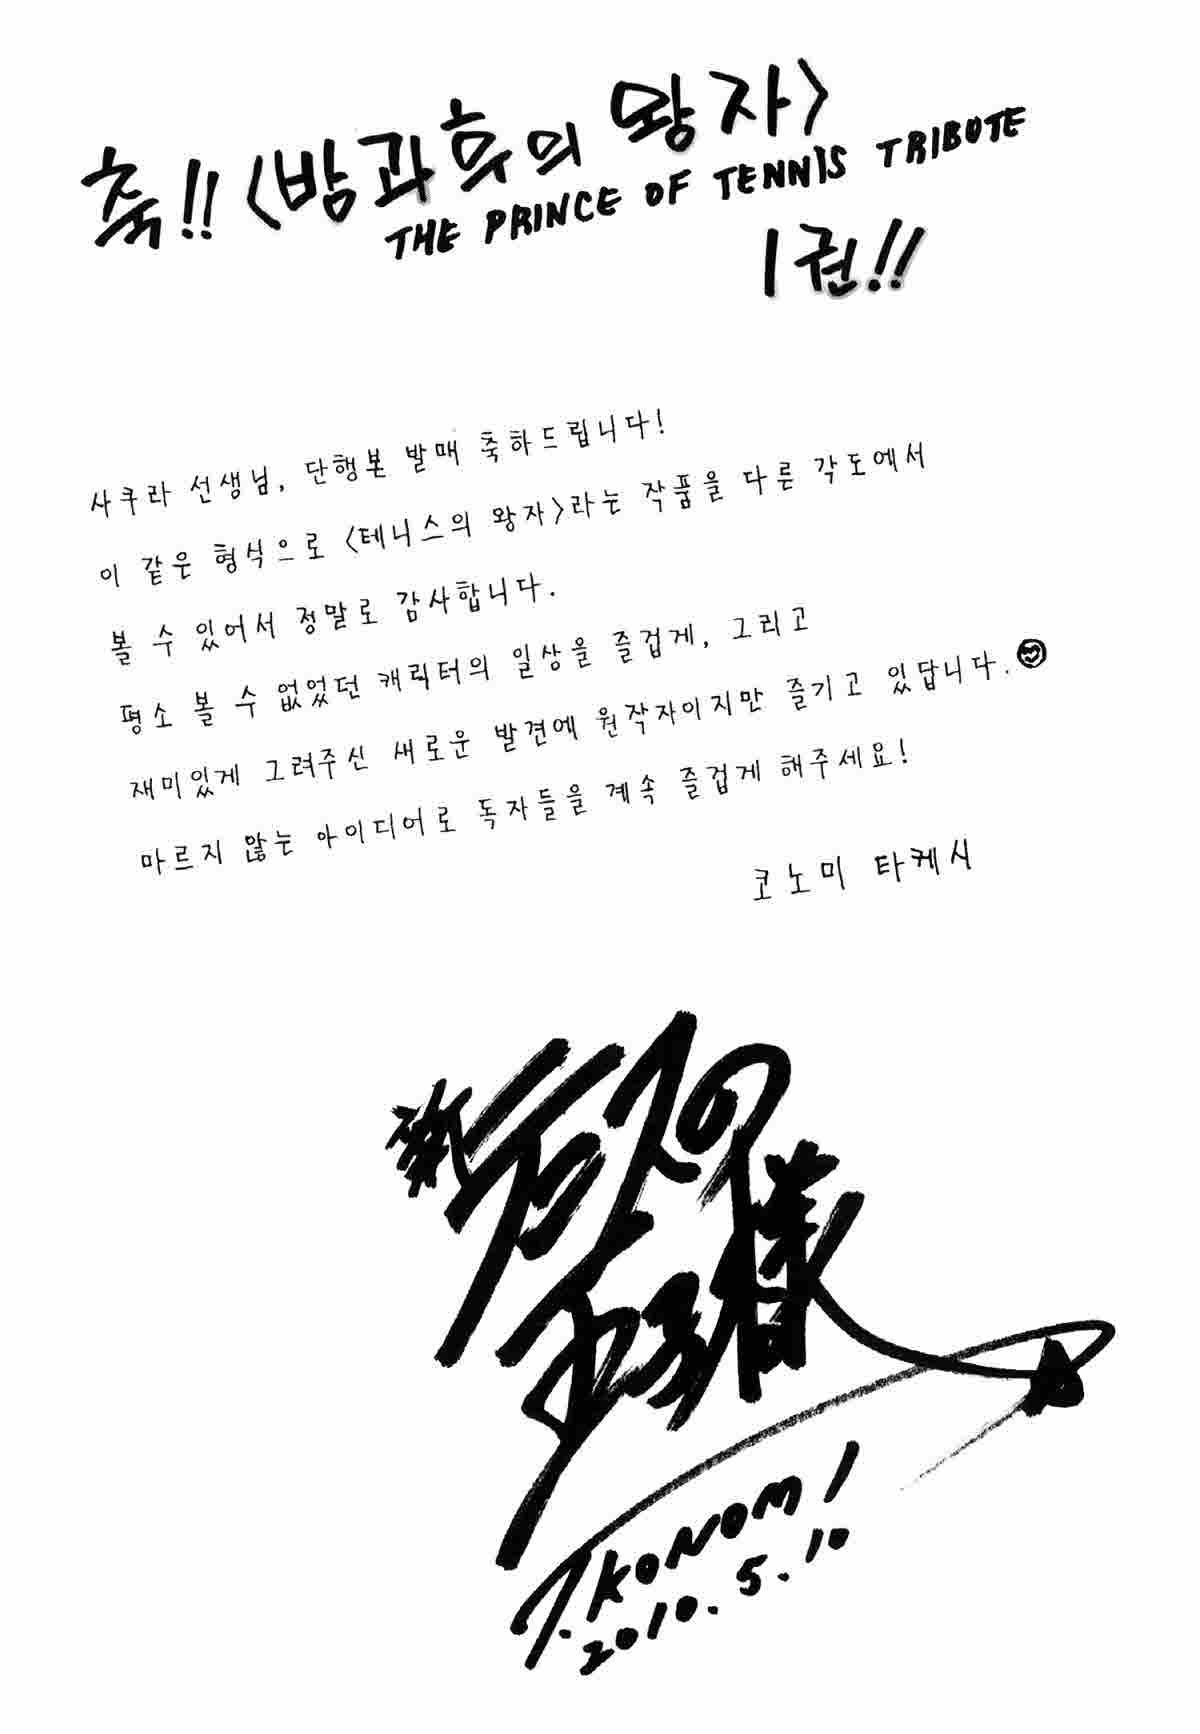 축!! <방과후의 왕자>
THE PRINCE OF TENNIS TRIBUTE
1권!!
사쿠라 선생님, 단행본 발매 축하드립니다!
이 같은 형식으로 <테니스의 왕자>라는 작품을 다른 각도에서
볼 수 있어서 정말로 감사합니다.
평소 볼 수 없었던 캐릭터의 일상을 즐겁게, 그리고
재미있게 그려주신 새로운 발견에 원작자이지만 즐기고 있답니다.
마르지 않는 아이디어로 독자들을 계속 즐겁게 해주세요!
코노미 타케시
新テニスの
王子様
T.KONOMI
2010.5.10